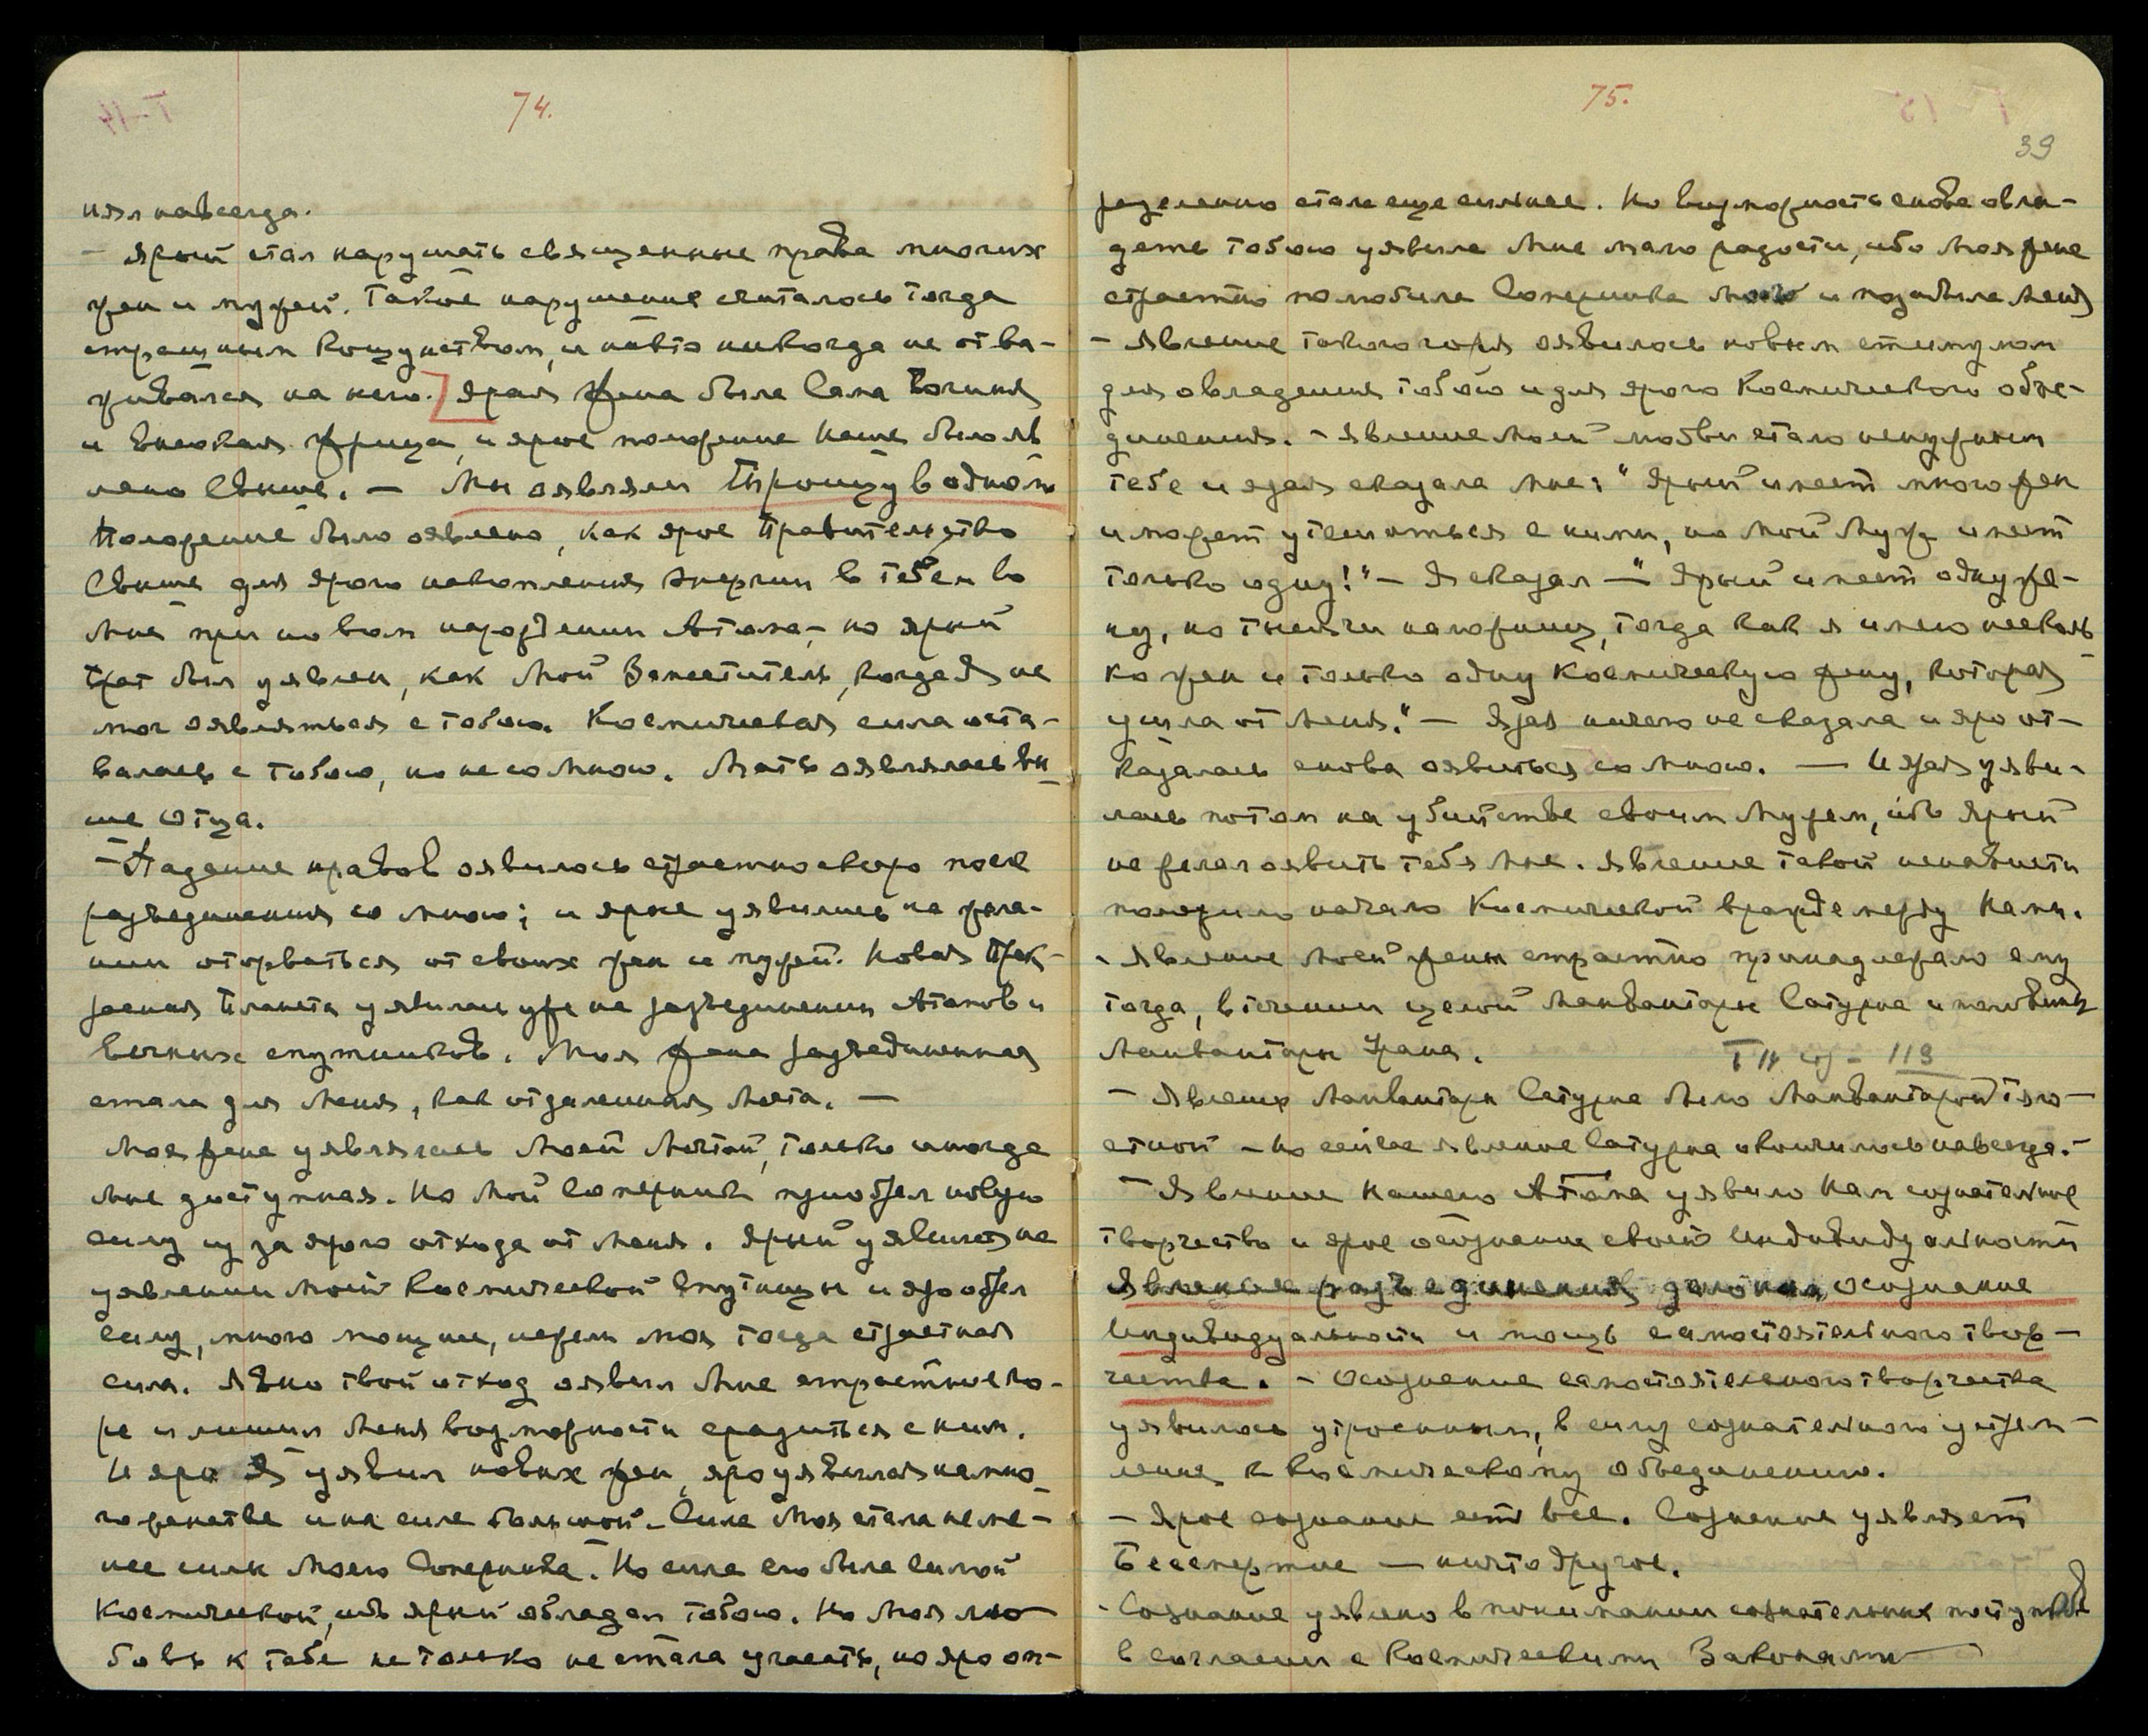 74.
нял навсегда.
— Ярый стал нарушать священные права многих
жен и мужей. Такое нарушение считалось тогда
страшным кощунством, и никто никогда не отва-
живался на него. Ярая жена была Сама Богиня
и Высокая Жрица, и ярое положение Наше было яв
лено Свыше. — Мы оявляли Троицу в одном
Положение было оявлено, как ярое Правительство
Свыше для ярого накопления энергии в тебе и во
Мне при новом нарождении Атома, — но ярый
был уявлен, как Мой Заместитель, когда Я не
мог оявляться с тобою. Космическая сила оста-
валась с Тобою, но не со Мною. Мать оявлялась вы
ше Отца.
— Падение нравов оявилось страстно скоро после
разъединения со Мною; и ярые уявились на жела-
нии оторваться от своих жен и мужей. Новая Прек-
расная Планета уявилась уже на разъединении Атомов и
вечных спутников. Моя жена разъединенная
стала для Меня, как отдаленная Мечта. —
Моя жена уявлялась Моей Мечтой, только иногда
Мне доступная. Но Мой Соперник приобрел новую
силу из за ярого отхода от Меня. Ярый уявился на
уявлении Моей Космической Спутницы и яро обрел
силу, много мощнее, нежели моя тогда страстная
сила. Явно твой отход оявил Мне страстное го-
ре и лишил Меня возможности сразиться с ним.
И яро Я уявил новых жен, яро уявился на мно
гоженстве и на силе большой. Сила Моя стала не ме-
нее силы Моего Соперника. Но сила его была Силой
Космической, ибо ярый обладал Тобою. Но Моя лю-
бовь к Тебе не только не стала угасать, но яро от-
75.
39
разделенно стала еще сильнее. Но возможность снова овла-
деть Тобою уявила Мне мало радости, ибо Моя жена
страстно полюбила Соперника Моего и позабыла Меня
— Явление такого горя оявилось новым стимулом
для овладения Тобою и для ярого Космического объе-
динения. — Явление Моей любви стало ненужным
Тебе и ярая сказала Мне: "Ярый имеет много жен
и может утешиться с ними, но Мой Муж имеет
только одну!" — Я сказал — "Ярый имеет одну же-
ну, но тысячи наложниц, тогда как я имею несколь
ко жен и только одну Космическую жену, которая
ушла от Меня." — Ярая ничего не сказала и яро от-
казалась снова оявиться со Мною. — И ярая уяви-
лась потом на убийстве своим Мужем, ибо Ярый
не желал оявить тебя Мне. Явление такой ненависти
положило начало Космической вражде между Нами.
— Явление Моей жены страстно принадлежало ему
тогда, в течении целой Манвантары Сатурна и половины
Манвантары Урана.
— Явление Манвантары Сатурна было Манвантарой тяго-
стной — но сейчас явление Сатурна окончилось навсегда. —
— Явление Нашего Атома уявило Нам сознательное
творчество и ярое осознание своей Индивидуальности
Явление разъединения осознание
Индивидуальности и мощь самостоятельного твор-
чества. — Осознание самостоятельного творчества
уявилось утроенным, в силу сознательного устрем-
ления к Космическому объединению.
— Ярое сознание есть все. Сознание уявляет
Бессмертие — ничто другое.
— Сознание уявлено в понимании сознательных поступков
в согласии с Космическими Законами —